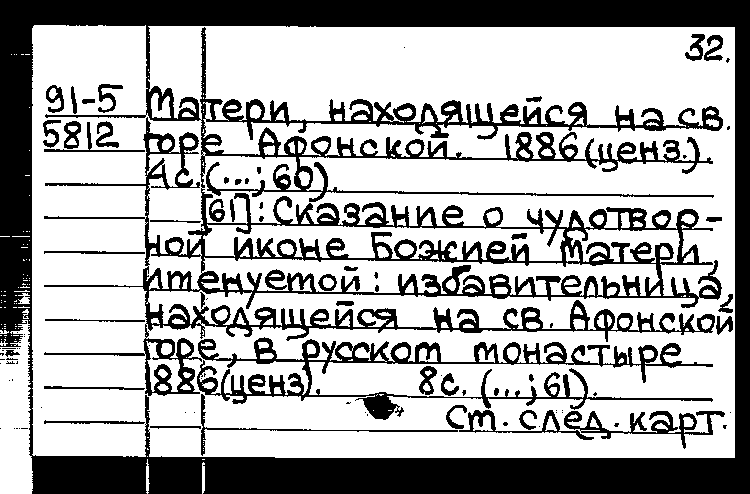 32.
91-5 Матери, находящейся на св.
5812 горе Афонской. 1886 (ценз.).
4с. (...; 60).
[61]: Сказание о чудотвор-
ной иконе Божией Матери,
именуемой: избавительница,
находящейся на св. Афонской
горе, в русском монастыре.
1886 (ценз). 8с. (...; 61).
См. след. карт.